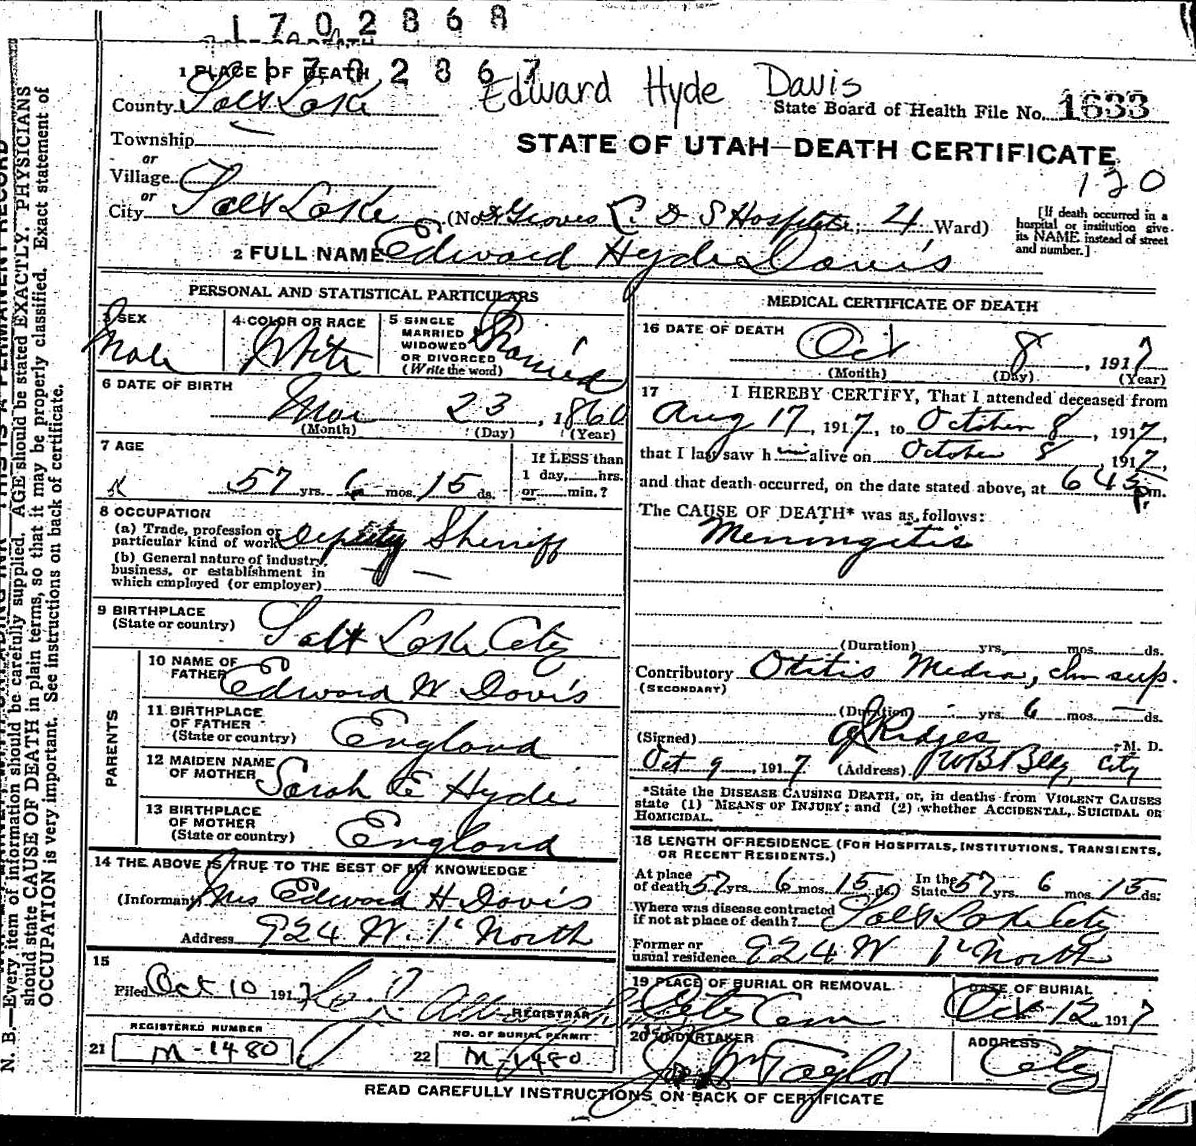 1702868
1702867
Edward Hyde Davis
1 PLACE OF DEATH
County Salt Lake
State Board of Health File No. 1633
Township
STATE OF UTAH—DEATH CERTIFICATE
or
Village
120
or
City Salt Lake (No. Groves L. D S Hospital; 4 Ward)
[If death occurred in a hospital or institution give its NAME instead of street and number.]
2 FULL NAME Edward Hyde Davis
PERSONAL AND STATISTICAL PARTICULARS
3 SEX
Male
4 COLOR OR RACE
White
5 SINGLE
MARRIED
WIDOWED
OR DIVORCED
(Write the word)
Married
6 DATE OF BIRTH
Mar 23, 1860
(Month) (Day) (Year)
7 AGE
57 yrs. 6 mos. 15 ds.
If LESS than
1 day, hrs.
or min.?
8 OCCUPATION
(a) Trade, profession or
particular kind of work Deputy Sheriff
(b) General nature of industry,
business, or establishment in
which employed (or employer)
9 BIRTHPLACE
(State or country) Salt Lake City
PARENTS
10 NAME OF
FATHER Edward W Davis
11 BIRTHPLACE
OF FATHER
(State or country) England
12 MAIDEN NAME
OF MOTHER Sarah E Hyde
13 BIRTHPLACE
OF MOTHER
(State or country) England
14 THE ABOVE IS TRUE TO THE BEST OF MY KNOWLEDGE
(Informant) Mrs Edward H Davis
Address 924 W. 1st North
15
Filed Oct 10 1917
REGISTRAR
REGISTERED NUMBER
21 M-1480
NO. OF BURIAL PERMIT
22 M-1480
MEDICAL CERTIFICATE OF DEATH
16 DATE OF DEATH
Oct 8, 1917
(Month) (Day) (Year)
17 I HEREBY CERTIFY, That I attended deceased from
Aug 17, 1917, to October 8, 1917,
that I last saw him alive on October 8, 1917,
and that death occurred, on the date stated above, at 6 45 p.m.
The CAUSE OF DEATH* was as follows:
Meningitis
(Duration) yrs. mos. ds.
Contributory Otitis Media, chr sup.
(SECONDARY)
(Duration) yrs. 6 mos. — ds.
(Signed) Ridges, M. D.
Oct 9, 1917 (Address) City
*State the DISEASE CAUSING DEATH, or, in deaths from VIOLENT CAUSES
state (1) MEANS OF INJURY; and (2) whether ACCIDENTAL, SUICIDAL OR
HOMICIDAL.
18 LENGTH OF RESIDENCE (FOR HOSPITALS, INSTITUTIONS, TRANSIENTS,
OR RECENT RESIDENTS.)
At place
of death 57 yrs. 6 mos. 15 ds. In the State 57 yrs. 6 mos. 15 ds.
Where was disease contracted
if not at place of death? Salt Lake City
Former or
usual residence 924 W 1st North
19 PLACE OF BURIAL OR REMOVAL
City Cem
DATE OF BURIAL
Oct 12 1917
20 UNDERTAKER
Taylor
ADDRESS
City
READ CAREFULLY INSTRUCTIONS ON BACK OF CERTIFICATE
N. B.—Every item of information should be carefully supplied. AGE should be stated EXACTLY. PHYSICIANS
should state CAUSE OF DEATH in plain terms, so that it may be properly classified. Exact statement of
OCCUPATION is very important. See instructions on back of certificate.